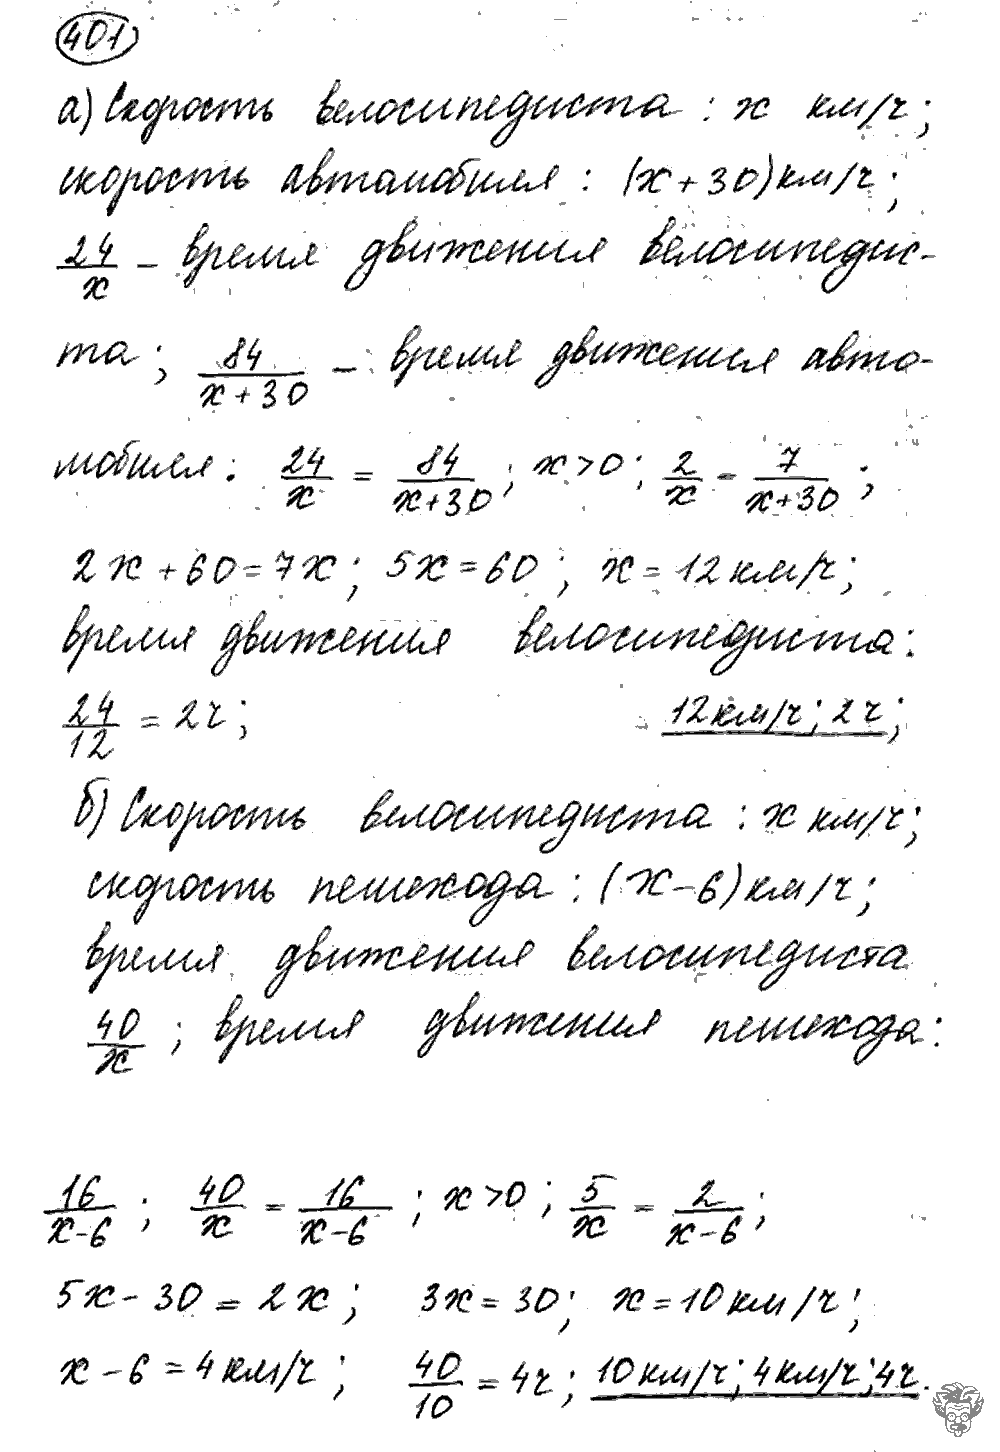 401
а) Скорость велосипедиста : x км/ч;
скорость автомобиля : (x + 30) км/ч;
24/x – время движения велосипедис-
та; 84/(x + 30) – время движения авто-
мобиля. 24/x = 84/(x + 30); x > 0; 2/x = 7/(x + 30);
2x + 60 = 7x; 5x = 60; x = 12 км/ч;
время движения велосипедиста:
24/12 = 2 ч; 12 км/ч; 2 ч;
б) Скорость велосипедиста : x км/ч;
скорость пешехода : (x – 6) км/ч;
время движения велосипедиста
40/x; время движения пешехода:
16/(x – 6); 40/x = 16/(x – 6); x > 0; 5/x = 2/(x – 6);
5x – 30 = 2x; 3x = 30; x = 10 км/ч;
x – 6 = 4 км/ч; 40/10 = 4 ч; 10 км/ч; 4 км/ч; 4 ч.